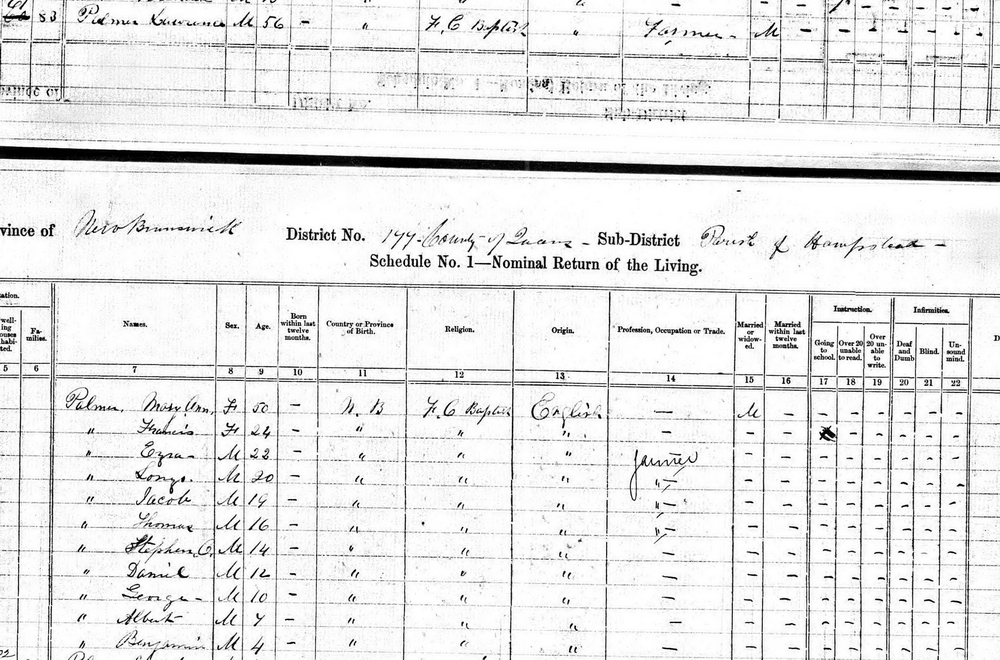 83 Palmer Lawrence M 56 - " F. C Baptist " Farmer - M - - - - - - -
vince of New Brunswick District No. 177 - County of Queens - Sub-District Parish of Hampstead -
Schedule No. 1—Nominal Return of the Living.
Names. Sex. Age. Born within last twelve months. Country or Province of Birth. Religion. Origin. Profession, Occupation or Trade. Married or widowed. Married within last twelve months. Instruction. Infirmities.
Fa-milies. Going to school. Over 20 unable to read. Over 20 un-able to write. Deaf and Dumb Blind. Un-sound mind.
5 6 7 8 9 10 11 12 13 14 15 16 17 18 19 20 21 22
Palmer, Mary Ann, F 50 - N. B F. C Baptist English — M - - - - - - -
" Francis F 24 - " " " - - - - - - - -
" Ezra - M 22 - " " " farmer - - - - - - - -
" M 20 - " " " " - - - - - - - -
" Jacob M 19 - " " " " - - - - - - - -
" Thomas M 16 - " " " " - - - - - - - -
" Stephen C. M 14 - " " " — - - - - - - - -
" Daniel M 12 - " " " — - - - - - - - -
" George - M 10 - " " " — - - - - - - - -
" Albert M 7 - " " " — - - - - - - - -
" Benjamin M 4 - " " " — - - - - - - - -